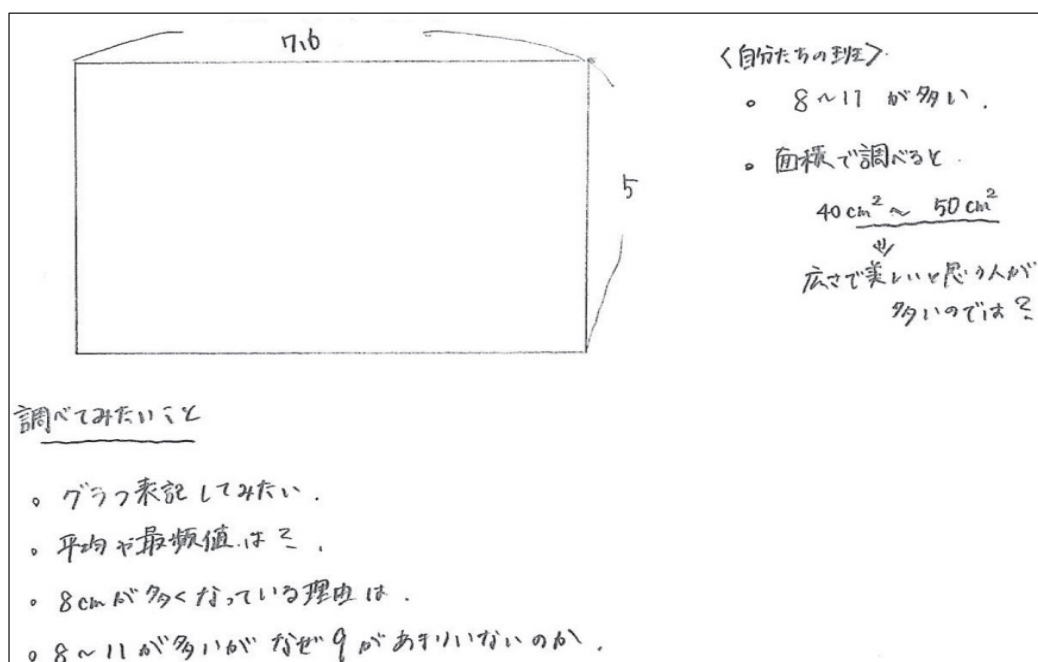 7.6
5
〈自分たちの班〉
。 8～11 が多い.
。 面積で調べると.
40cm²～ 50cm²
広さで美しいと思う人が
多いのでは?
調べてみたいこと
。 グラフ表記してみたい.
。 平均や最頻値は?.
。 8cmが多くなっている理由は.
。 8～11が多いが なぜ9があまりいないのか.